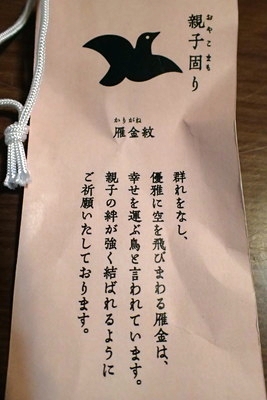 おやこまも
親子固り
かりがね
雁金紋
群れをなし、
優雅に空を飛びまわる雁金は、
幸せを運ぶ鳥と言われています。
親子の絆が強く結ばれるように
ご祈願いたしております。